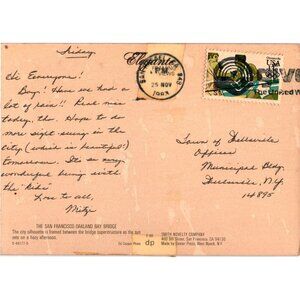 Friday
Elegante
Hi Everyone!
Boy! Have we had a
lot of rain!! Real nice
today, tho. Hope to do
more sight seeing in the
city (which is beautiful)
tomorrow. It's so
wonderful being with
the "kids"
Love to all,
Mitze
PM
25 NOV
USA
Town of
Offices
Municipal Bldg.
N.Y.
14895
THE SAN FRANCISCO OAKLAND BAY BRIDGE
The city silhouette is framed between the bridge superstructure as the sun
sets on a hazy afternoon.
dp
SMITH NOVELTY COMPANY
460 9th Street, San Francisco, CA 94103
Made by Dexter Press, West Nyack, NY